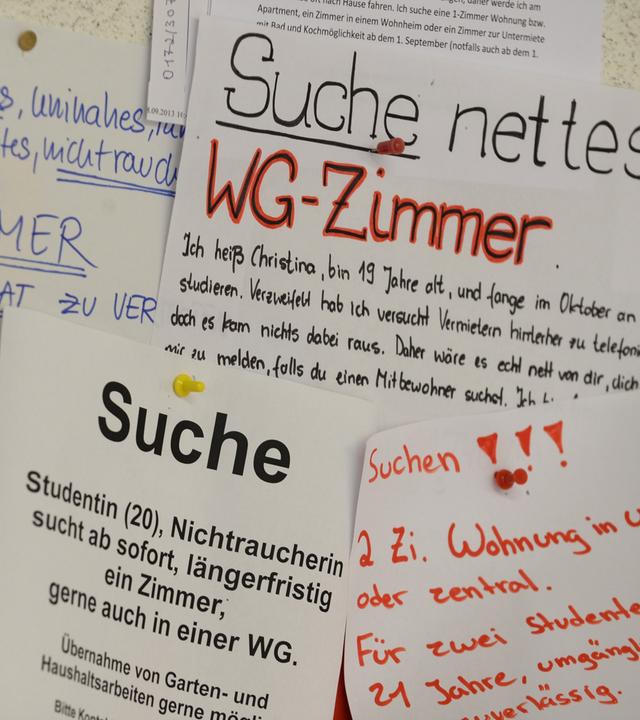 nach Hause fahren. Ich suche eine 1-Zimmer Wohnung bzw.
Apartment, ein Zimmer in einem Wohnheim oder ein Zimmer zur Untermiete
mit Bad und Kochmöglichkeit ab dem 1. September (notfalls auch ab dem 1.
uninahes,
nichtrauch
MER
AT ZU VER
Suche nettes
WG-Zimmer
Ich heiß Christina, bin 19 Jahre alt, und fange im Oktober an
studieren. Verzweifelt hab ich versucht Vermietern hinterher zu telefoni
doch es kam nichts dabei raus. Daher wäre es echt nett von dir, dich
mir zu melden, falls du einen Mitbewohner suchst. Ich
Suche
Studentin (20), Nichtraucherin
sucht ab sofort, längerfristig
ein Zimmer,
gerne auch in einer WG.
Übernahme von Garten- und
Haushaltsarbeiten gerne mögli
Bitte Kont
Suchen !!!
2 Zi. Wohnung in U
oder zentral.
Für zwei Studente
21 Jahre, umgängl
zuverlässig.